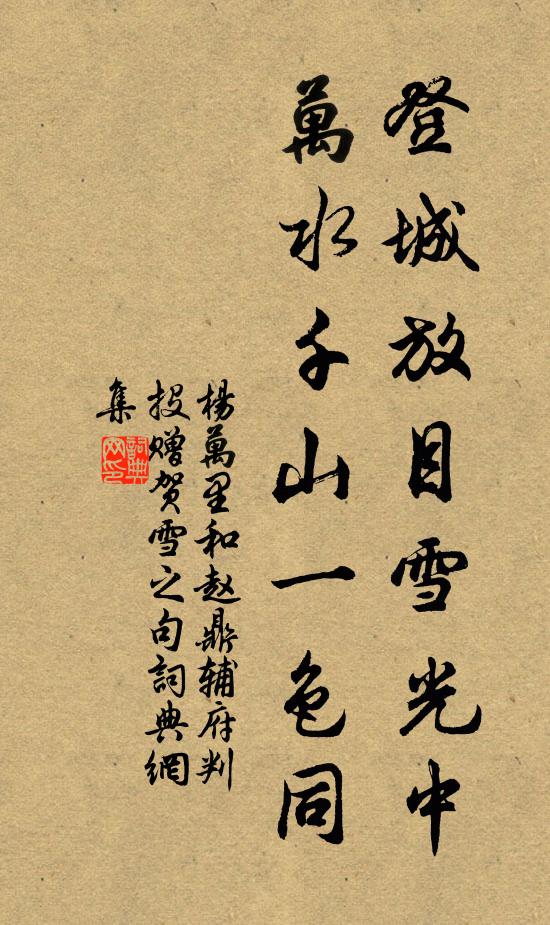 登城放目雪光中
萬水千山一色同
楊萬里和赵鼎辅府判
投赠贺雪之句詞典網
集
詞典
网印